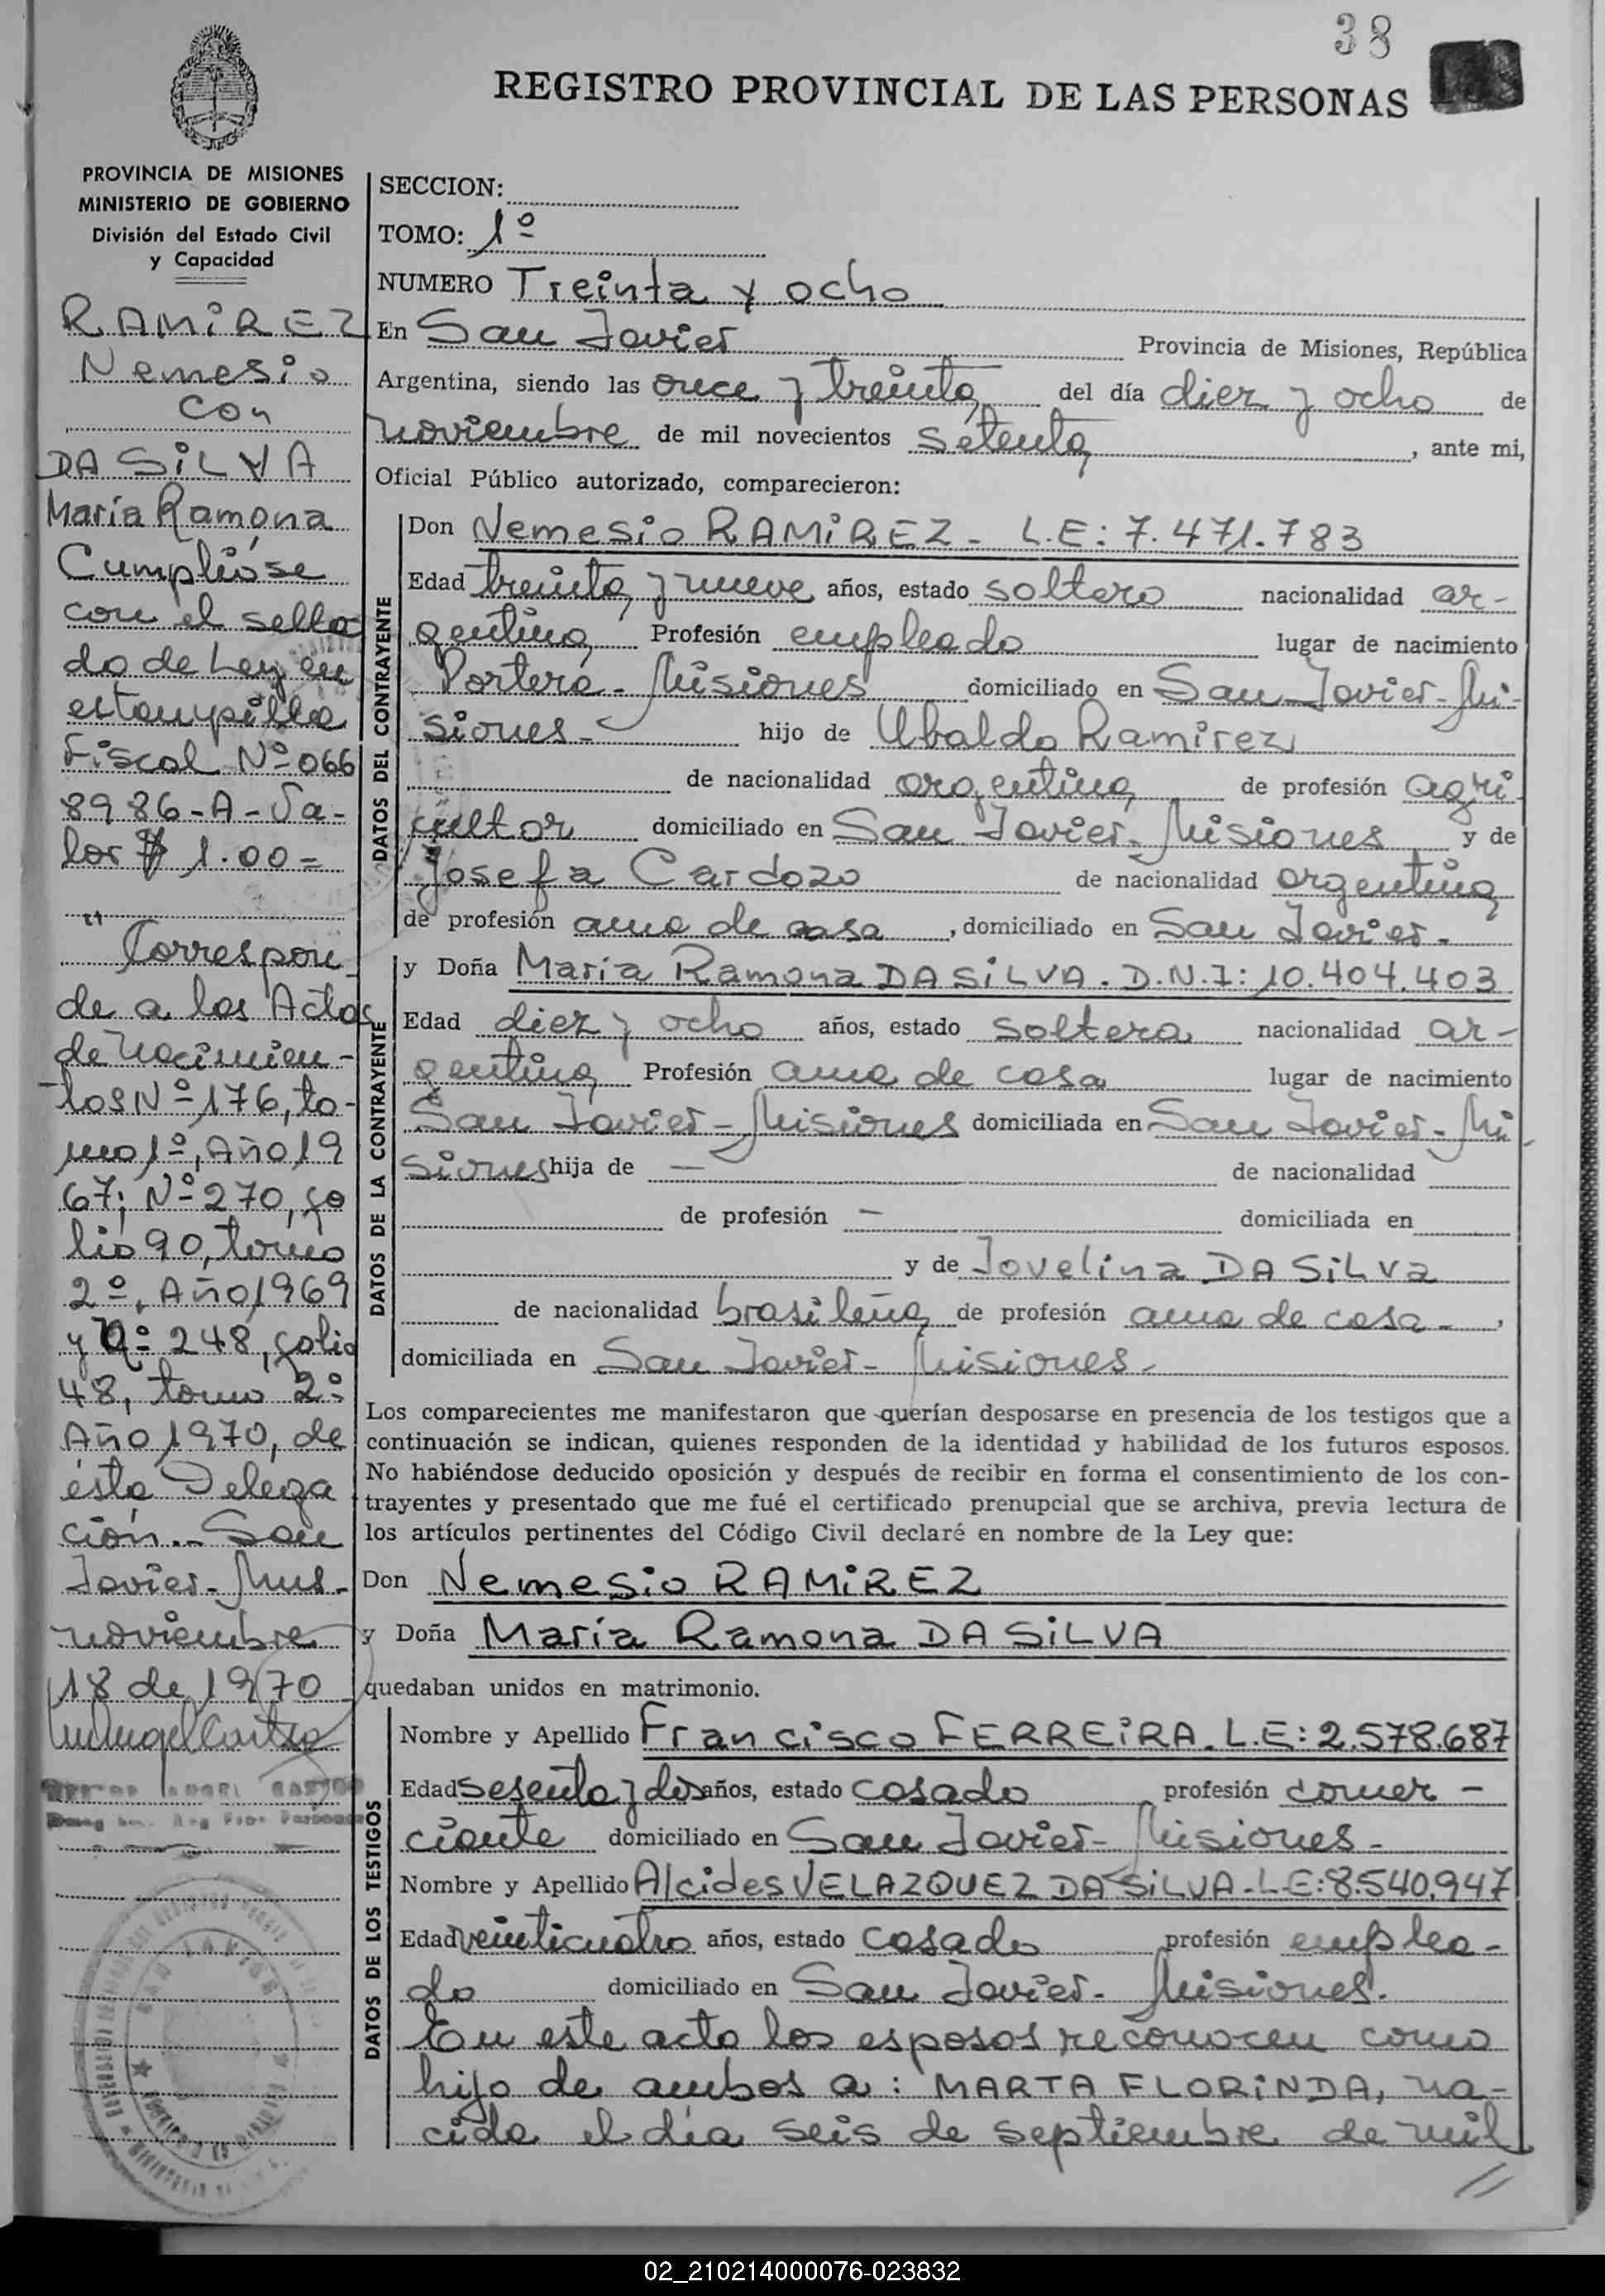 38
REGISTRO PROVINCIAL DE LAS PERSONAS
PROVINCIA DE MISIONES
MINISTERIO DE GOBIERNO
División del Estado Civil
y Capacidad
RAMiREZ
Nemesio
con
DA SiLVA
María Ramona
Cumplióse
con el sella
do de Ley en
estampilla
Fiscal Nº 066
8986-A-Va-
lor $ 1.00=
" Correspon
de a las Actas
de nacimien-
tos Nº 176, to-
mo 1º, Año 19
67; Nº 270, fo
lio 90, tomo
2º, Año 1969
y Nº 248, folio
48, tomo 2º
Año 1970, de
ésta Delega
ción.- San
Javier- Mnes-
noviembre
18 de 1970
SECCION:
TOMO: 1º
NUMERO Treinta y ocho
En San Javier Provincia de Misiones, República
Argentina, siendo las once y treinta del día diez y ocho de
noviembre de mil novecientos setenta, ante mi,
Oficial Público autorizado, comparecieron:
DATOS DEL CONTRAYENTE
Don Nemesio RAMiREZ - L.E: 7.471.783
Edad treinta y nueve años, estado soltero nacionalidad ar-
gentina Profesión empleado lugar de nacimiento
Portera - Misiones domiciliado en San Javier- Mi-
siones- hijo de Ubaldo Ramirez
de nacionalidad argentina de profesión agri
cultor domiciliado en San Javier- Misiones y de
Josefa Cardozo de nacionalidad argentina
de profesión ama de casa, domiciliado en San Javier-
DATOS DE LA CONTRAYENTE
y Doña María Ramona DA SiLVA. D.N.I: 10.404.403
Edad diez y ocho años, estado soltera nacionalidad ar-
gentina Profesión ama de casa lugar de nacimiento
San Javier- Misiones domiciliada en San Javier- Mi
siones hija de — de nacionalidad
de profesión — domiciliada en
y de Jovelina DA SiLVa
de nacionalidad brasileña de profesión ama de casa-,
domiciliada en San Javier- Misiones-
Los comparecientes me manifestaron que querían desposarse en presencia de los testigos que a
continuación se indican, quienes responden de la identidad y habilidad de los futuros esposos.
No habiéndose deducido oposición y después de recibir en forma el consentimiento de los con-
trayentes y presentado que me fué el certificado prenupcial que se archiva, previa lectura de
los artículos pertinentes del Código Civil declaré en nombre de la Ley que:
Don Nemesio RAMiREZ
y Doña María Ramona DA SiLVA
quedaban unidos en matrimonio.
DATOS DE LOS TESTIGOS
Nombre y Apellido Francisco FERREiRA. L.E: 2.578.687
Edad sesenta y dos años, estado casado profesión comer-
ciante domiciliado en San Javier- Misiones-
Nombre y Apellido Alcides VELAZQUEZ DA SiLVA-L-E: 8.540.947
Edad veinticuatro años, estado casado profesión emplea-
do domiciliado en San Javier- Misiones.
En este acto los esposos reconocen como
hijo de ambos a: MARTA FLORiNDA, na-
cida el día seis de septiembre de mil
//
02_210214000076-023832